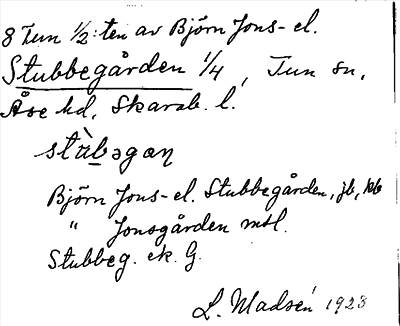 8 Tun 1/2:ten av Björn Jons- el.
Stubbegården 1/4, Tun sn,
Åse hd, Skarab. l.
stùbəgan
Björn Jons-el. Stubbegården, jb, kb
" Jonsgården mtl.
Stubbeg. ek. G.
L. Madsén 1923